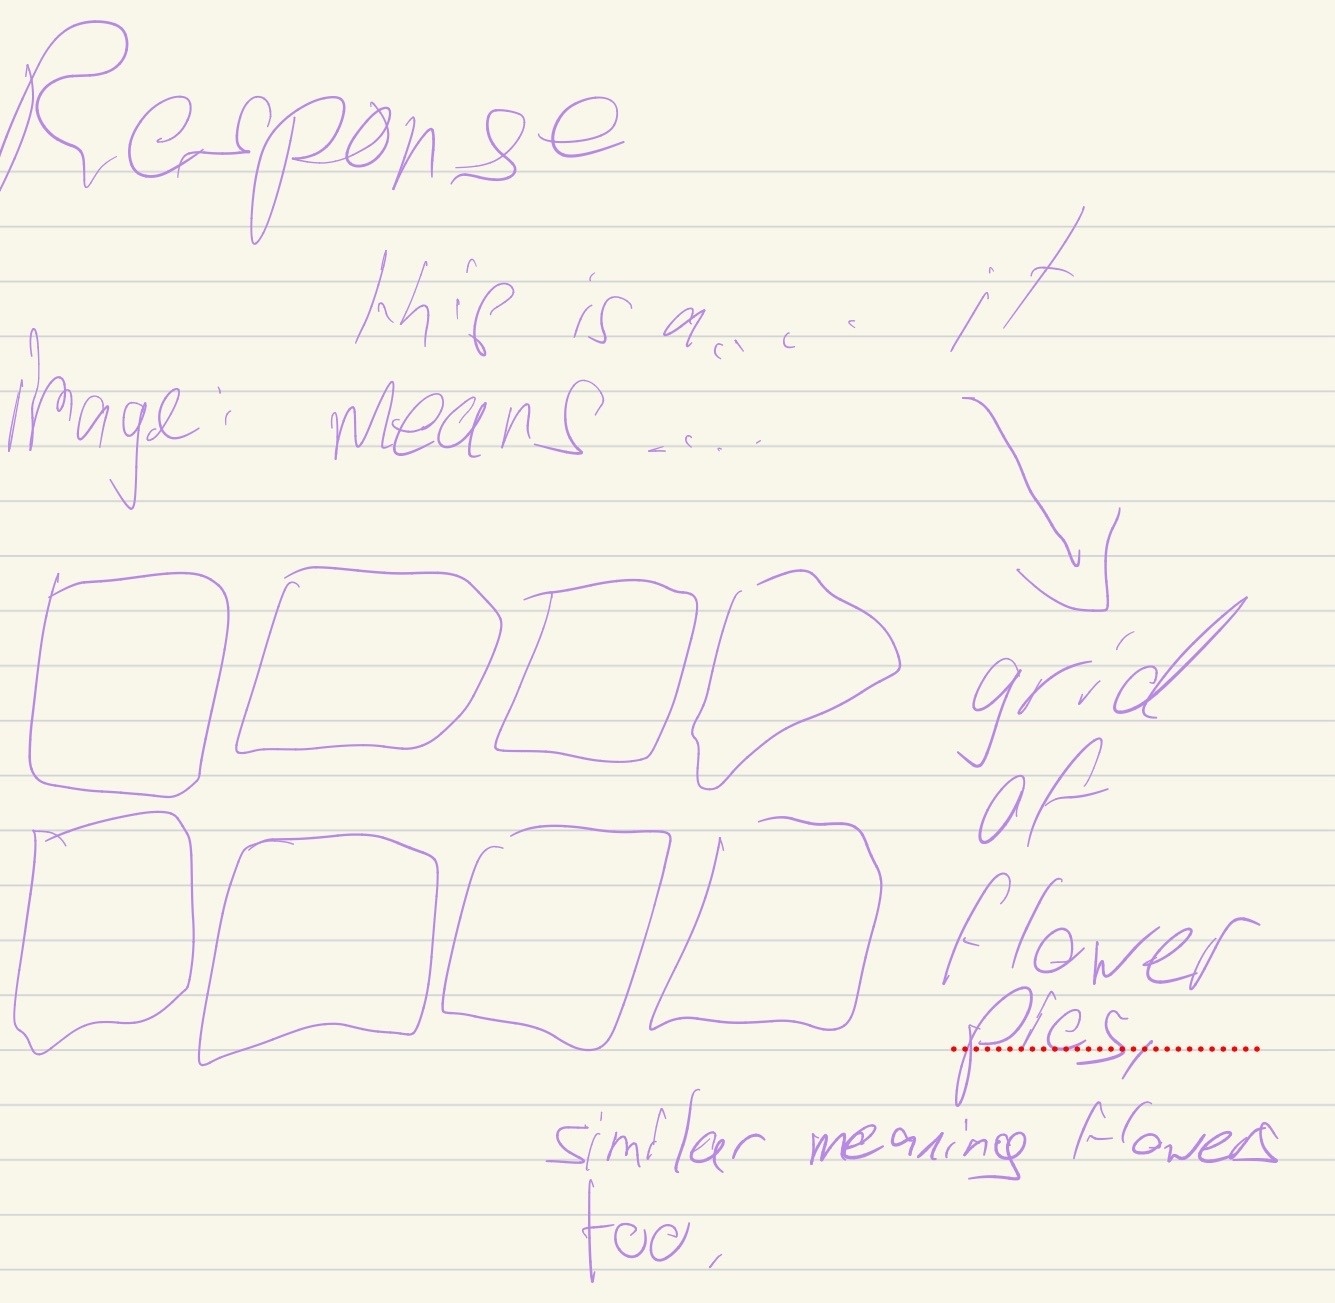 Response
this is a....
it
Image: means....
grid
of
flower
pics,
similar meaning flowers
too.